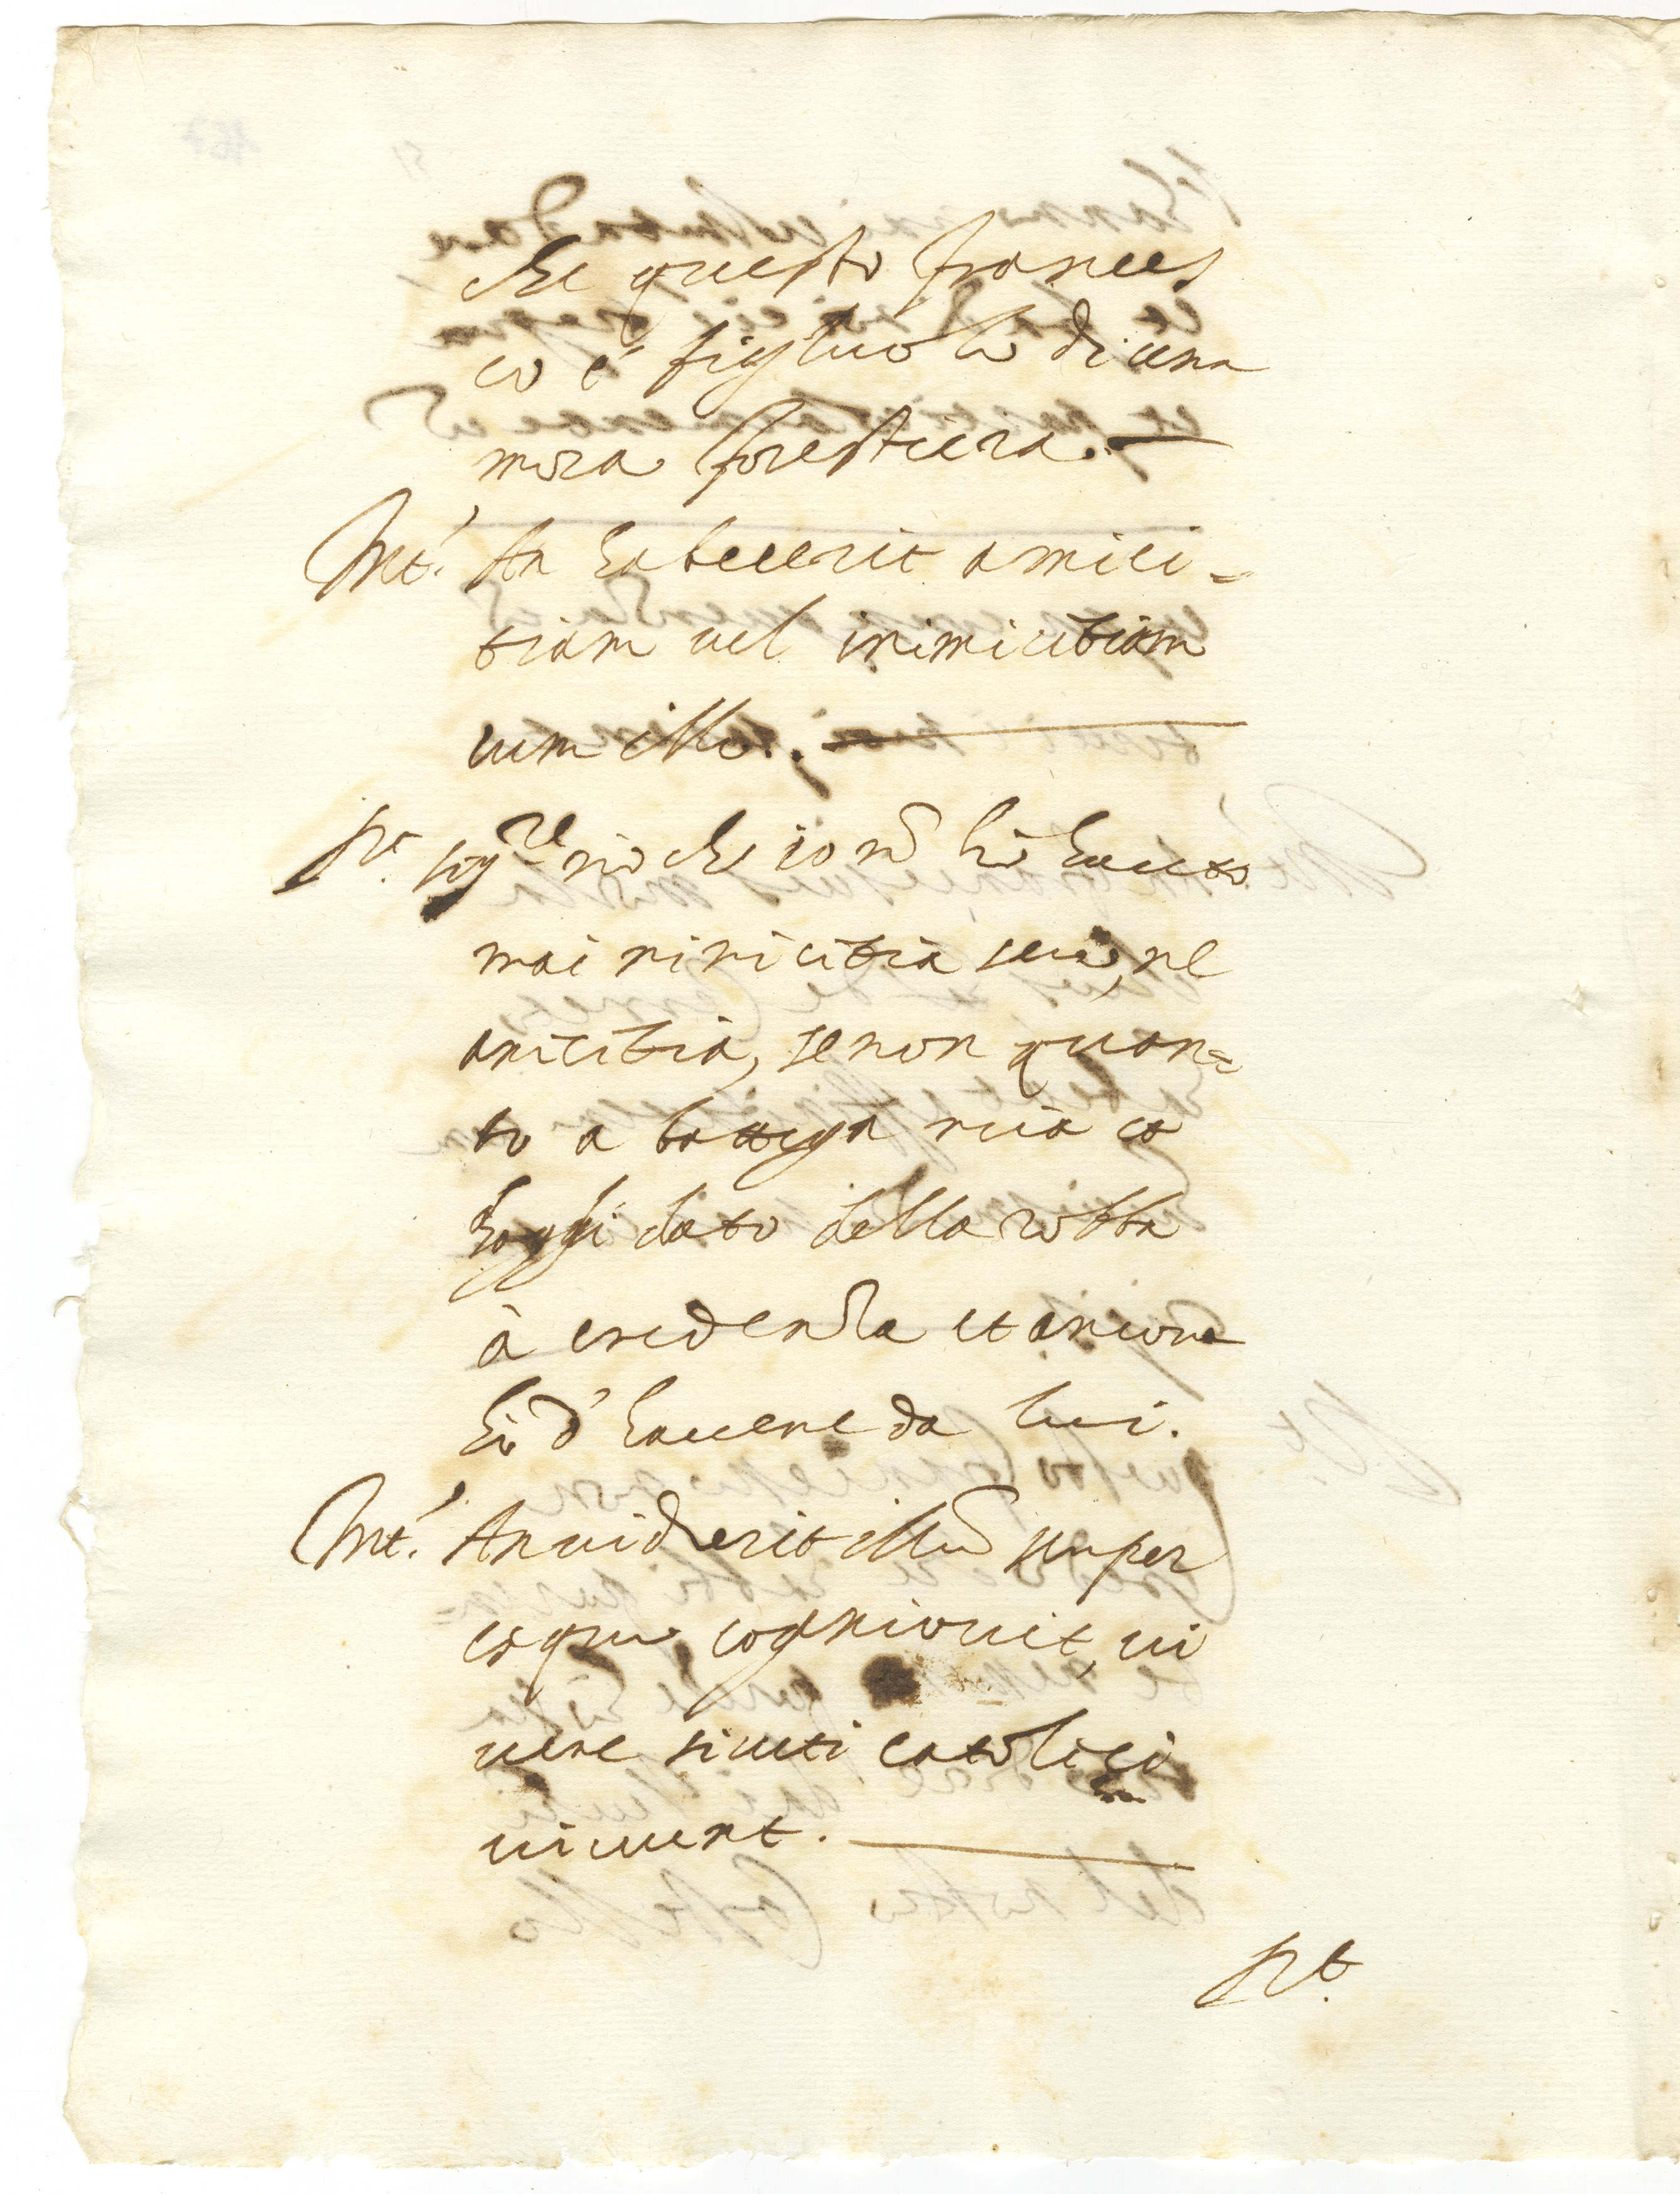 che questo Frances
co è figliuolo di una
mora forestiera.
Int.' An habuerit amici=
tiam vel inimicitiam
cum illo.
Rt. Sig.re nò che io nō hò hauuto
mai nimicitia seco, ne
amicitia, se non quan=
to a bottega mia co
hoggli dato della robba
à credenza et ancora
hò d' hauere da lui.
Int.' An viderit illū semper
cognoverit, vi
vere sicuti catolici
vivunt.
Rt.